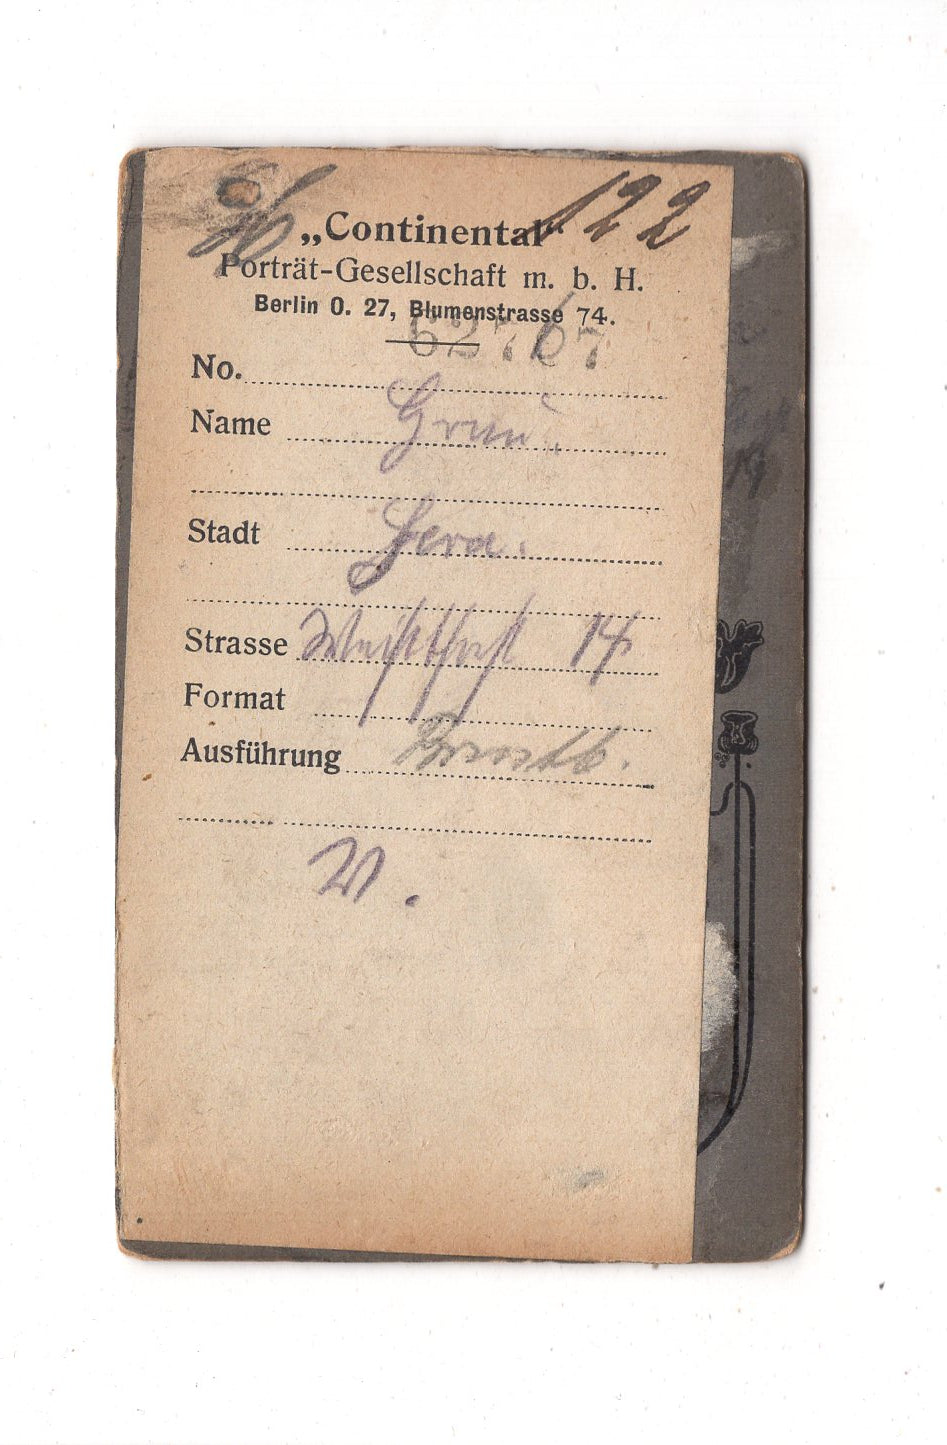 122
„Continental"
Porträt-Gesellschaft m. b. H.
Berlin O. 27, Blumenstrasse 74.
62767
No.
Name Grün.
Stadt Gera.
Strasse 14
Format
Ausführung Brustb.
W.